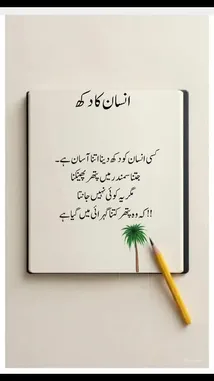 انسان کا دکھ
کسی انسان کو دکھ دینا اتنا آسان ہے۔
جتنا سمندر میں پتھر پھینکنا
مگر یہ کوئی نہیں جانتا
!!کہ وہ پتھر کتنا گہرائی میں گیا ہے